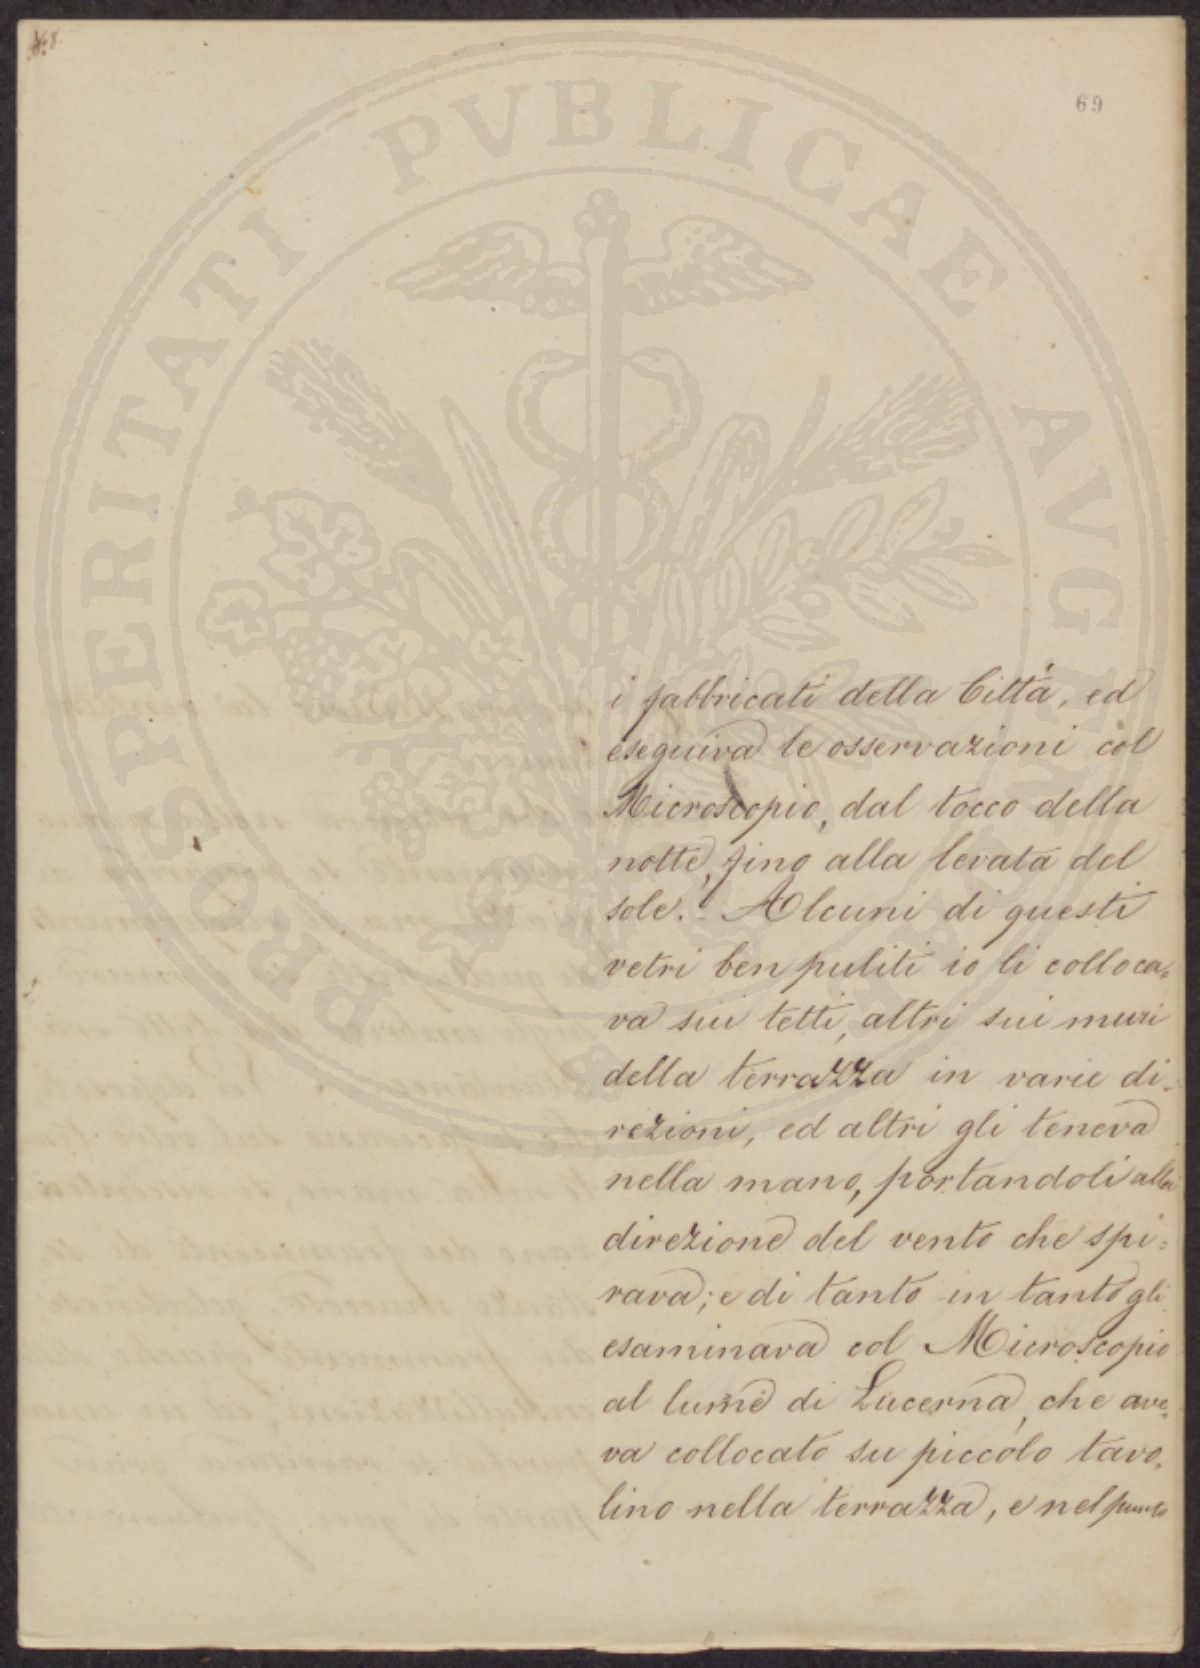 N. 8.
69
PROSPERITATI PVBLICAE AVGENDAE
i fabbricati della Città, ed
eseguiva le osservazioni col
Microscopio, dal tocco della
notte, fino alla levata del
sole. Alcuni di questi
vetri ben puliti io li colloca=
va sui tetti, altri sui muri
della terrazza in varie di=
rezioni, ed altri gli teneva
nella mano, portandoli alla
direzione del vento che spi=
rava; e di tanto in tanto gli
esaminava col Microscopio
al lume di Lucerna, che ave=
va collocato su piccolo tavo=
lino nella terrazza, e nel punto